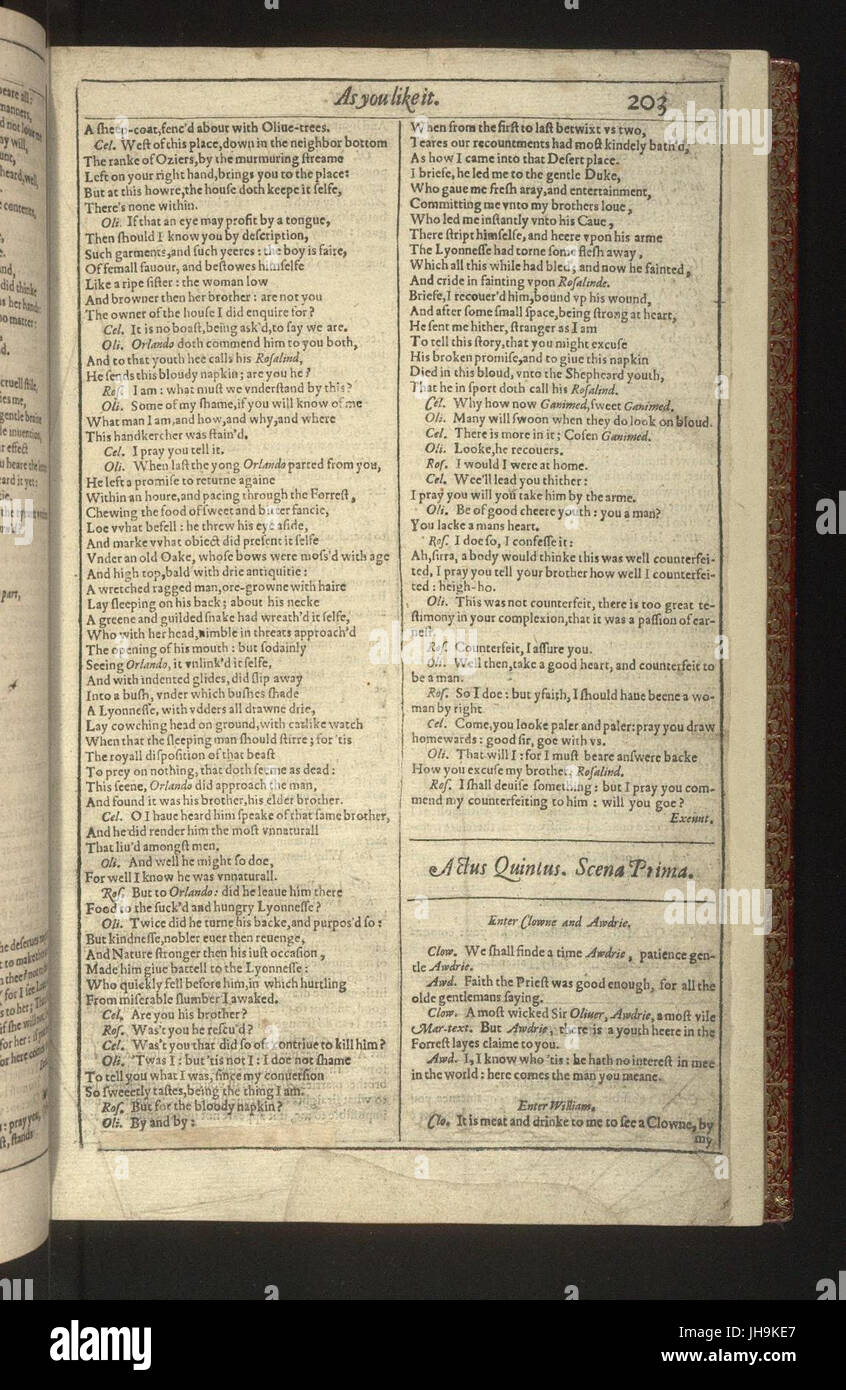 As you like it. 203
A sheep-coat, fenc'd about with Oliue-trees.
Cel. West of this place, down in the neighbor bottom
The ranke of Oziers, by the murmuring streame
Left on your right hand, brings you to the place:
But at this howre, the house doth keepe it selfe,
There's none within.
Oli. If that an eye may profit by a tongue,
Then should I know you by description,
Such garments, and such yeeres: the boy is faire,
Of femall fauour, and bestowes himselfe
Like a ripe sister: the woman low
And browner then her brother: are not you
The owner of the house I did enquire for?
Cel. It is no boast, being ask'd, to say we are.
Oli. Orlando doth commend him to you both,
And to that youth hee calls his Rosalind,
He sends this bloudy napkin; are you he?
Ros. I am: what must we vnderstand by this?
Oli. Some of my shame, if you will know of me
What man I am, and how, and why, and where
This handkercher was stain'd.
Cel. I pray you tell it.
Oli. When last the yong Orlando parted from you,
He left a promise to returne againe
Within an houre, and pacing through the Forrest,
Chewing the food of sweet and bitter fancie,
Loe vvhat befell: he threw his eye aside,
And marke vvhat obiect did present it selfe
Vnder an old Oake, whose bows were moss'd with age
And high top, bald with drie antiquitie:
A wretched ragged man, ore-growne with haire
Lay sleeping on his back; about his necke
A greene and guilded snake had wreath'd it selfe,
Who with her head, nimble in threats approach'd
The opening of his mouth: but sodainly
Seeing Orlando, it vnlink'd it selfe,
And with indented glides, did slip away
Into a bush, vnder which bushes shade
A Lyonnesse, with vdders all drawne drie,
Lay cowching head on ground, with catlike watch
When that the sleeping man should stirre; for 'tis
The royall disposition of that beast
To prey on nothing, that doth seeme as dead:
This seene, Orlando did approach the man,
And found it was his brother, his elder brother.
Cel. O I haue heard him speake of that same brother,
And he did render him the most vnnaturall
That liu'd amongst men.
Oli. And well he might so doe,
For well I know he was vnnaturall.
Ros. But to Orlando: did he leaue him there
Food to the suck'd and hungry Lyonnesse?
Oli. Twice did he turne his backe, and purpos'd so:
But kindnesse, nobler euer then reuenge,
And Nature stronger then his iust occasion,
Made him giue battell to the Lyonnesse:
Who quickly fell before him, in which hurtling
From miserable slumber I awaked.
Cel. Are you his brother?
Ros. Was't you he rescu'd?
Cel. Was't you that did so oft contriue to kill him?
Oli. 'Twas I: but 'tis not I: I doe not shame
To tell you what I was, since my conuersion
So sweetly tastes, being the thing I am.
Ros. But for the bloody napkin?
Oli. By and by:
When from the first to last betwixt vs two,
Teares our recountments had most kindely bath'd,
As how I came into that Desert place.
I briefe, he led me to the gentle Duke,
Who gaue me fresh aray, and entertainment,
Committing me vnto my brothers loue,
Who led me instantly vnto his Caue,
There stript himselfe, and heere vpon his arme
The Lyonnesse had torne some flesh away,
Which all this while had bled; and now he fainted,
And cride in fainting vpon Rosalinde.
Briefe, I recouer'd him, bound vp his wound,
And after some small space, being strong at heart,
He sent me hither, stranger as I am
To tell this story, that you might excuse
His broken promise, and to giue this napkin
Died in this bloud, vnto the Shepheard youth,
That he in sport doth call his Rosalind.
Cel. Why how now Ganimed, sweet Ganimed.
Oli. Many will swoon when they do look on bloud.
Cel. There is more in it; Cosen Ganimed.
Oli. Looke, he recouers.
Ros. I would I were at home.
Cel. Wee'll lead you thither:
I pray you will you take him by the arme.
Oli. Be of good cheere youth: you a man?
You lacke a mans heart.
Ros. I doe so, I confesse it:
Ah, sirra, a body would thinke this was well counterfei-
ted, I pray you tell your brother how well I counterfei-
ted: heigh-ho.
Oli. This was not counterfeit, there is too great te-
stimony in your complexion, that it was a passion of ear-
nest.
Ros. Counterfeit, I assure you.
Oli. Well then, take a good heart, and counterfeit to
be a man.
Ros. So I doe: but yfaith, I should haue beene a wo-
man by right.
Cel. Come, you looke paler and paler: pray you draw
homewards: good sir, goe with vs.
Oli. That will I: for I must beare answere backe
How you excuse my brother, Rosalind.
Ros. I shall deuise something: but I pray you com-
mend my counterfeiting to him: will you goe?
Exeunt.
Actus Quintus. Scena Prima.
Enter Clowne and Awdrie.
Clow. We shall finde a time Awdrie, patience gen-
tle Awdrie.
Awd. Faith the Priest was good enough, for all the
olde gentlemans saying.
Clow. A most wicked Sir Oliuer, Awdrie, a most vile
Mar-text. But Awdrie, there is a youth heere in the
Forrest layes claime to you.
Awd. I, I know who 'tis: he hath no interest in mee
in the world: here comes the man you meane.
Enter William.
Clo. It is meat and drinke to me to see a Clowne, by
my
alamy
Image ID: JH9KE7
www.alamy.com